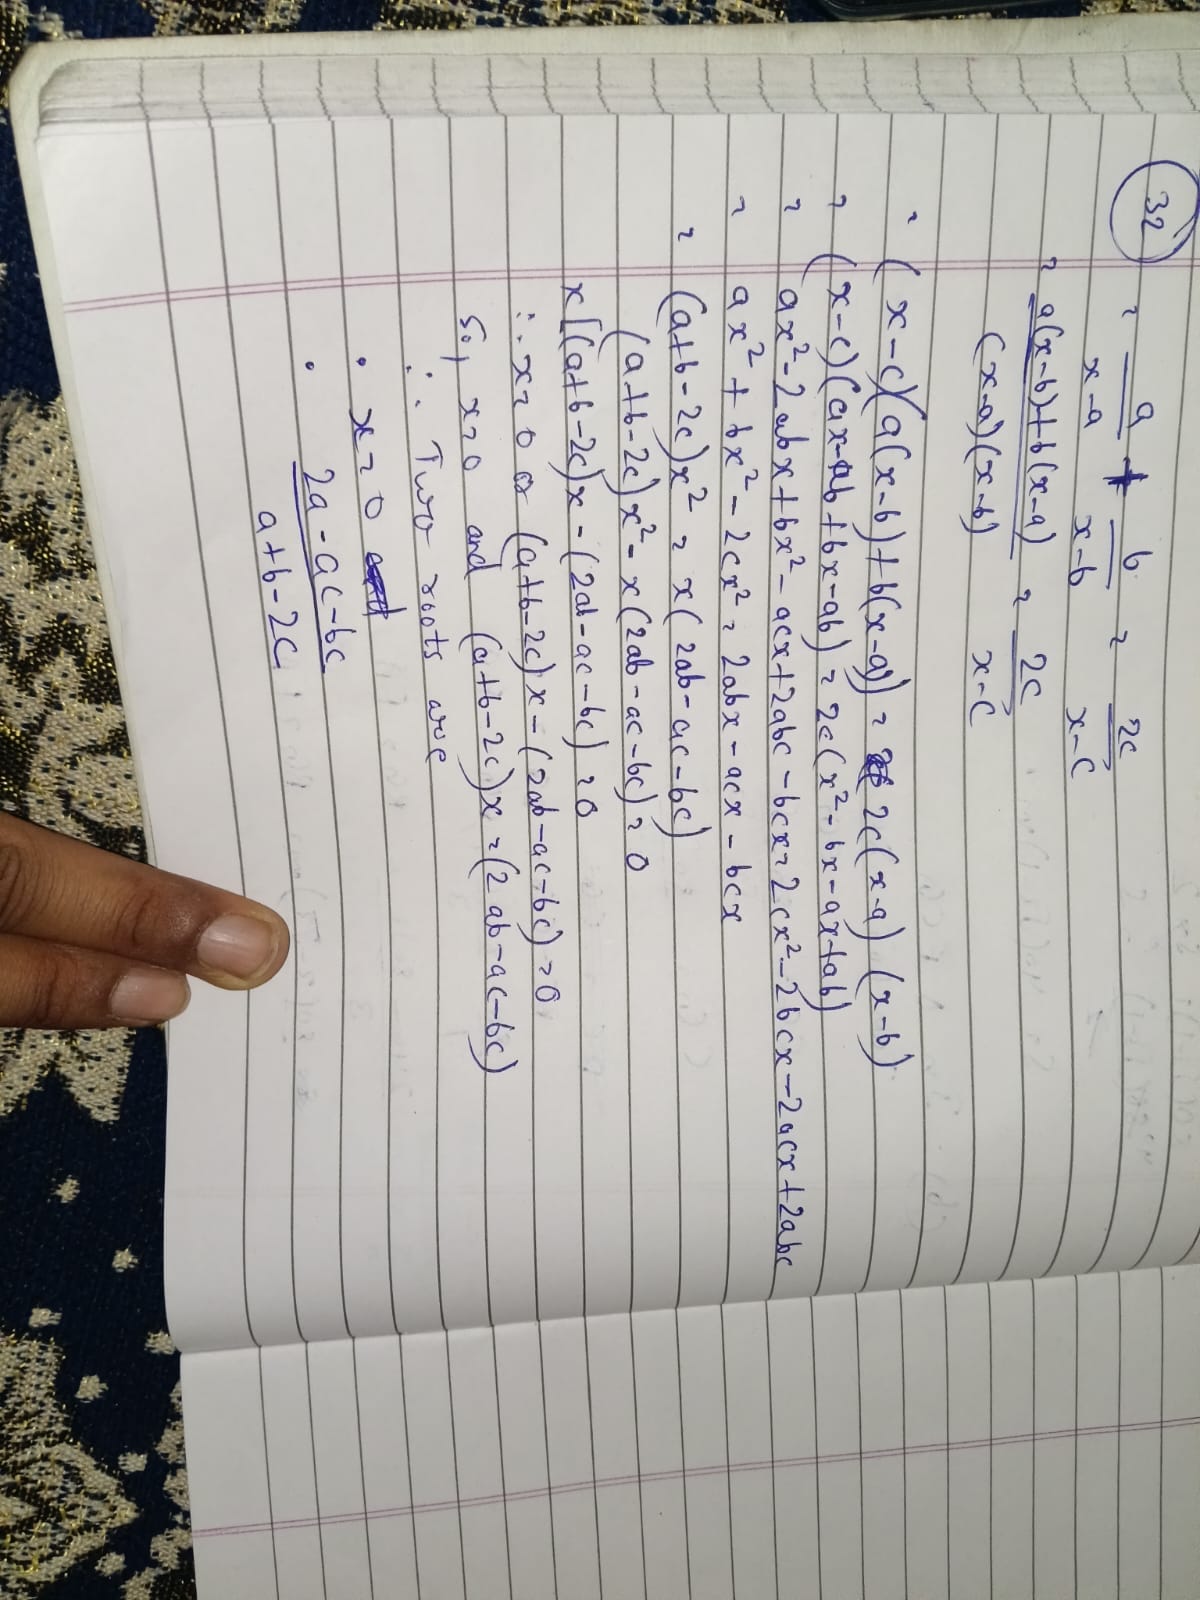 32
= a/(x-a) + b/(x-b) = 2c/(x-c)
= (a(x-b)+b(x-a))/((x-a)(x-b)) = 2c/(x-c)
= (x-c)(a(x-b)+b(x-a)) = 2c(x-a)(x-b)
= (x-c)(ax-ab+bx-ab) = 2c(x²-bx-ax+ab)
= ax²-2abx+bx²-acx+2abc-bcx = 2cx²-2bcx-2acx+2abc
= ax²+bx²-2cx² = 2abx-acx-bcx
= (a+b-2c)x² = x(2ab-ac-bc)
(a+b-2c)x²-x(2ab-ac-bc)=0
x[(a+b-2c)x-(2ab-ac-bc)=0
∴ x=0 or (a+b-2c)x-(2ab-ac-bc)=0
So, x=0 and (a+b-2c)x=(2ab-ac-bc)
∴ Two roots are
• x=0
• (2a-ac-bc)/(a+b-2c)